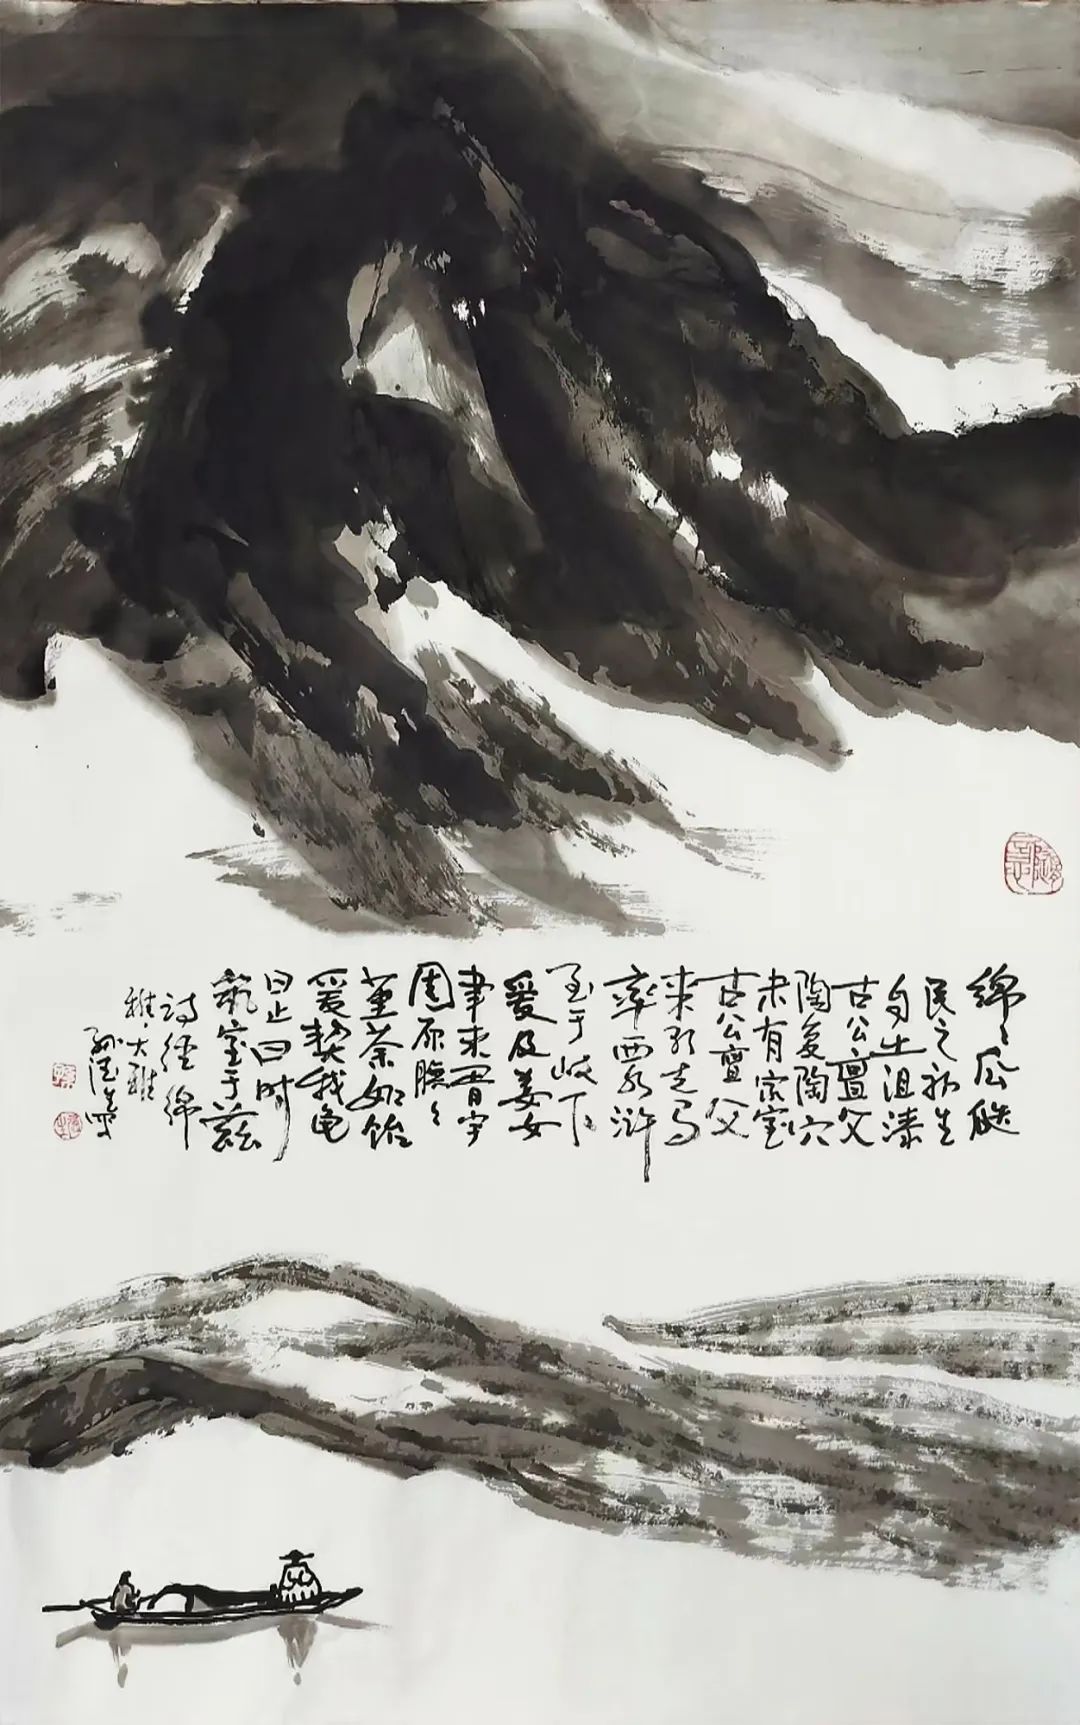 绵〻瓜瓞
民之初生
自土沮漆
古公亶父
陶复陶穴
未有家室
古公亶父
来朝走马
率西水浒
至于岐下
爰及姜女
聿来胥宇
周原膴〻
堇荼如饴
爰契我龟
曰止曰时
筑室于兹
诗经 绵
雅·大雅